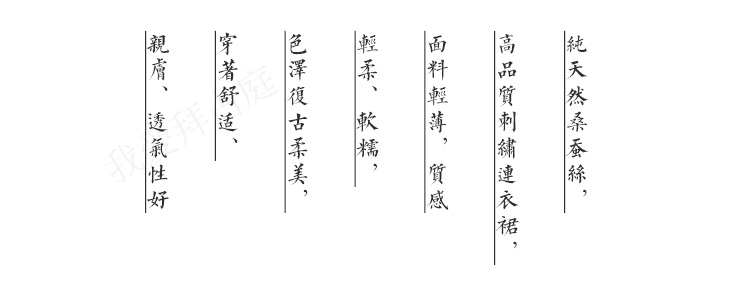 純天然桑蚕絲，
高品質刺繡連衣裙，
面料輕薄，質感
輕柔、軟糯，
色澤復古柔美，
穿著舒适、
親膚、透氣性好